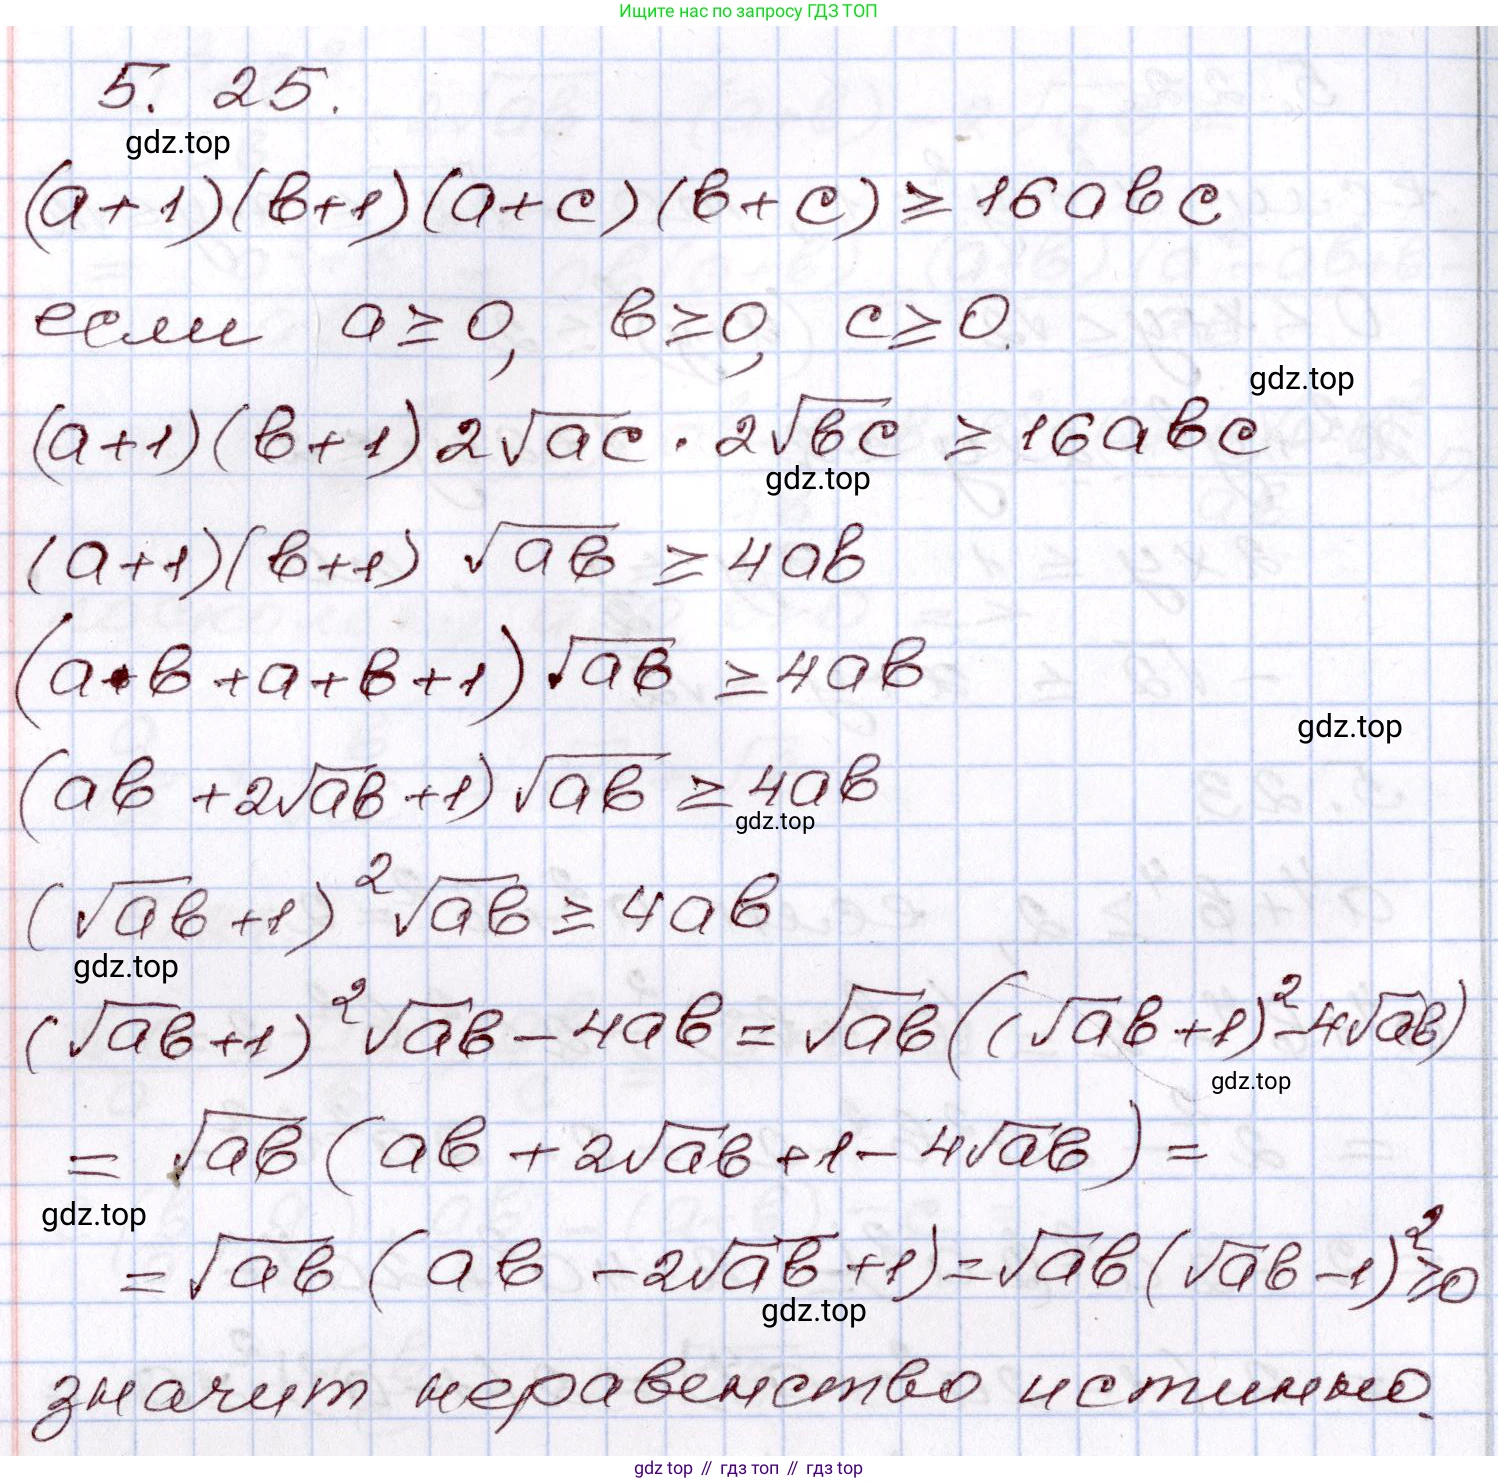 Ищите нас по запросу ГДЗ ТОП
5. 25.
gdz.top
(a+1)(в+1)(a+c)(в+c) ≥ 16aвc
если a≥0, в≥0, c≥0.
gdz.top
(a+1)(в+1)2√ac · 2√вc ≥ 16aвc
gdz.top
(a+1)(в+1) √aв ≥ 4aв
(a·в+a+в+1)√aв ≥ 4aв
gdz.top
(aв +2√aв+1)√aв ≥ 4aв
gdz.top
(√aв+1)²√aв ≥ 4aв
gdz.top
(√aв+1)²√aв − 4aв = √aв((√aв+1)²−4√aв)
gdz.top
= √aв(aв + 2√aв +1 − 4√aв) =
gdz.top
= √aв(aв − 2√aв +1) = √aв(√aв −1)² ≥0
gdz.top
значит неравенство истинно.
gdz top // гдз топ // гдз top